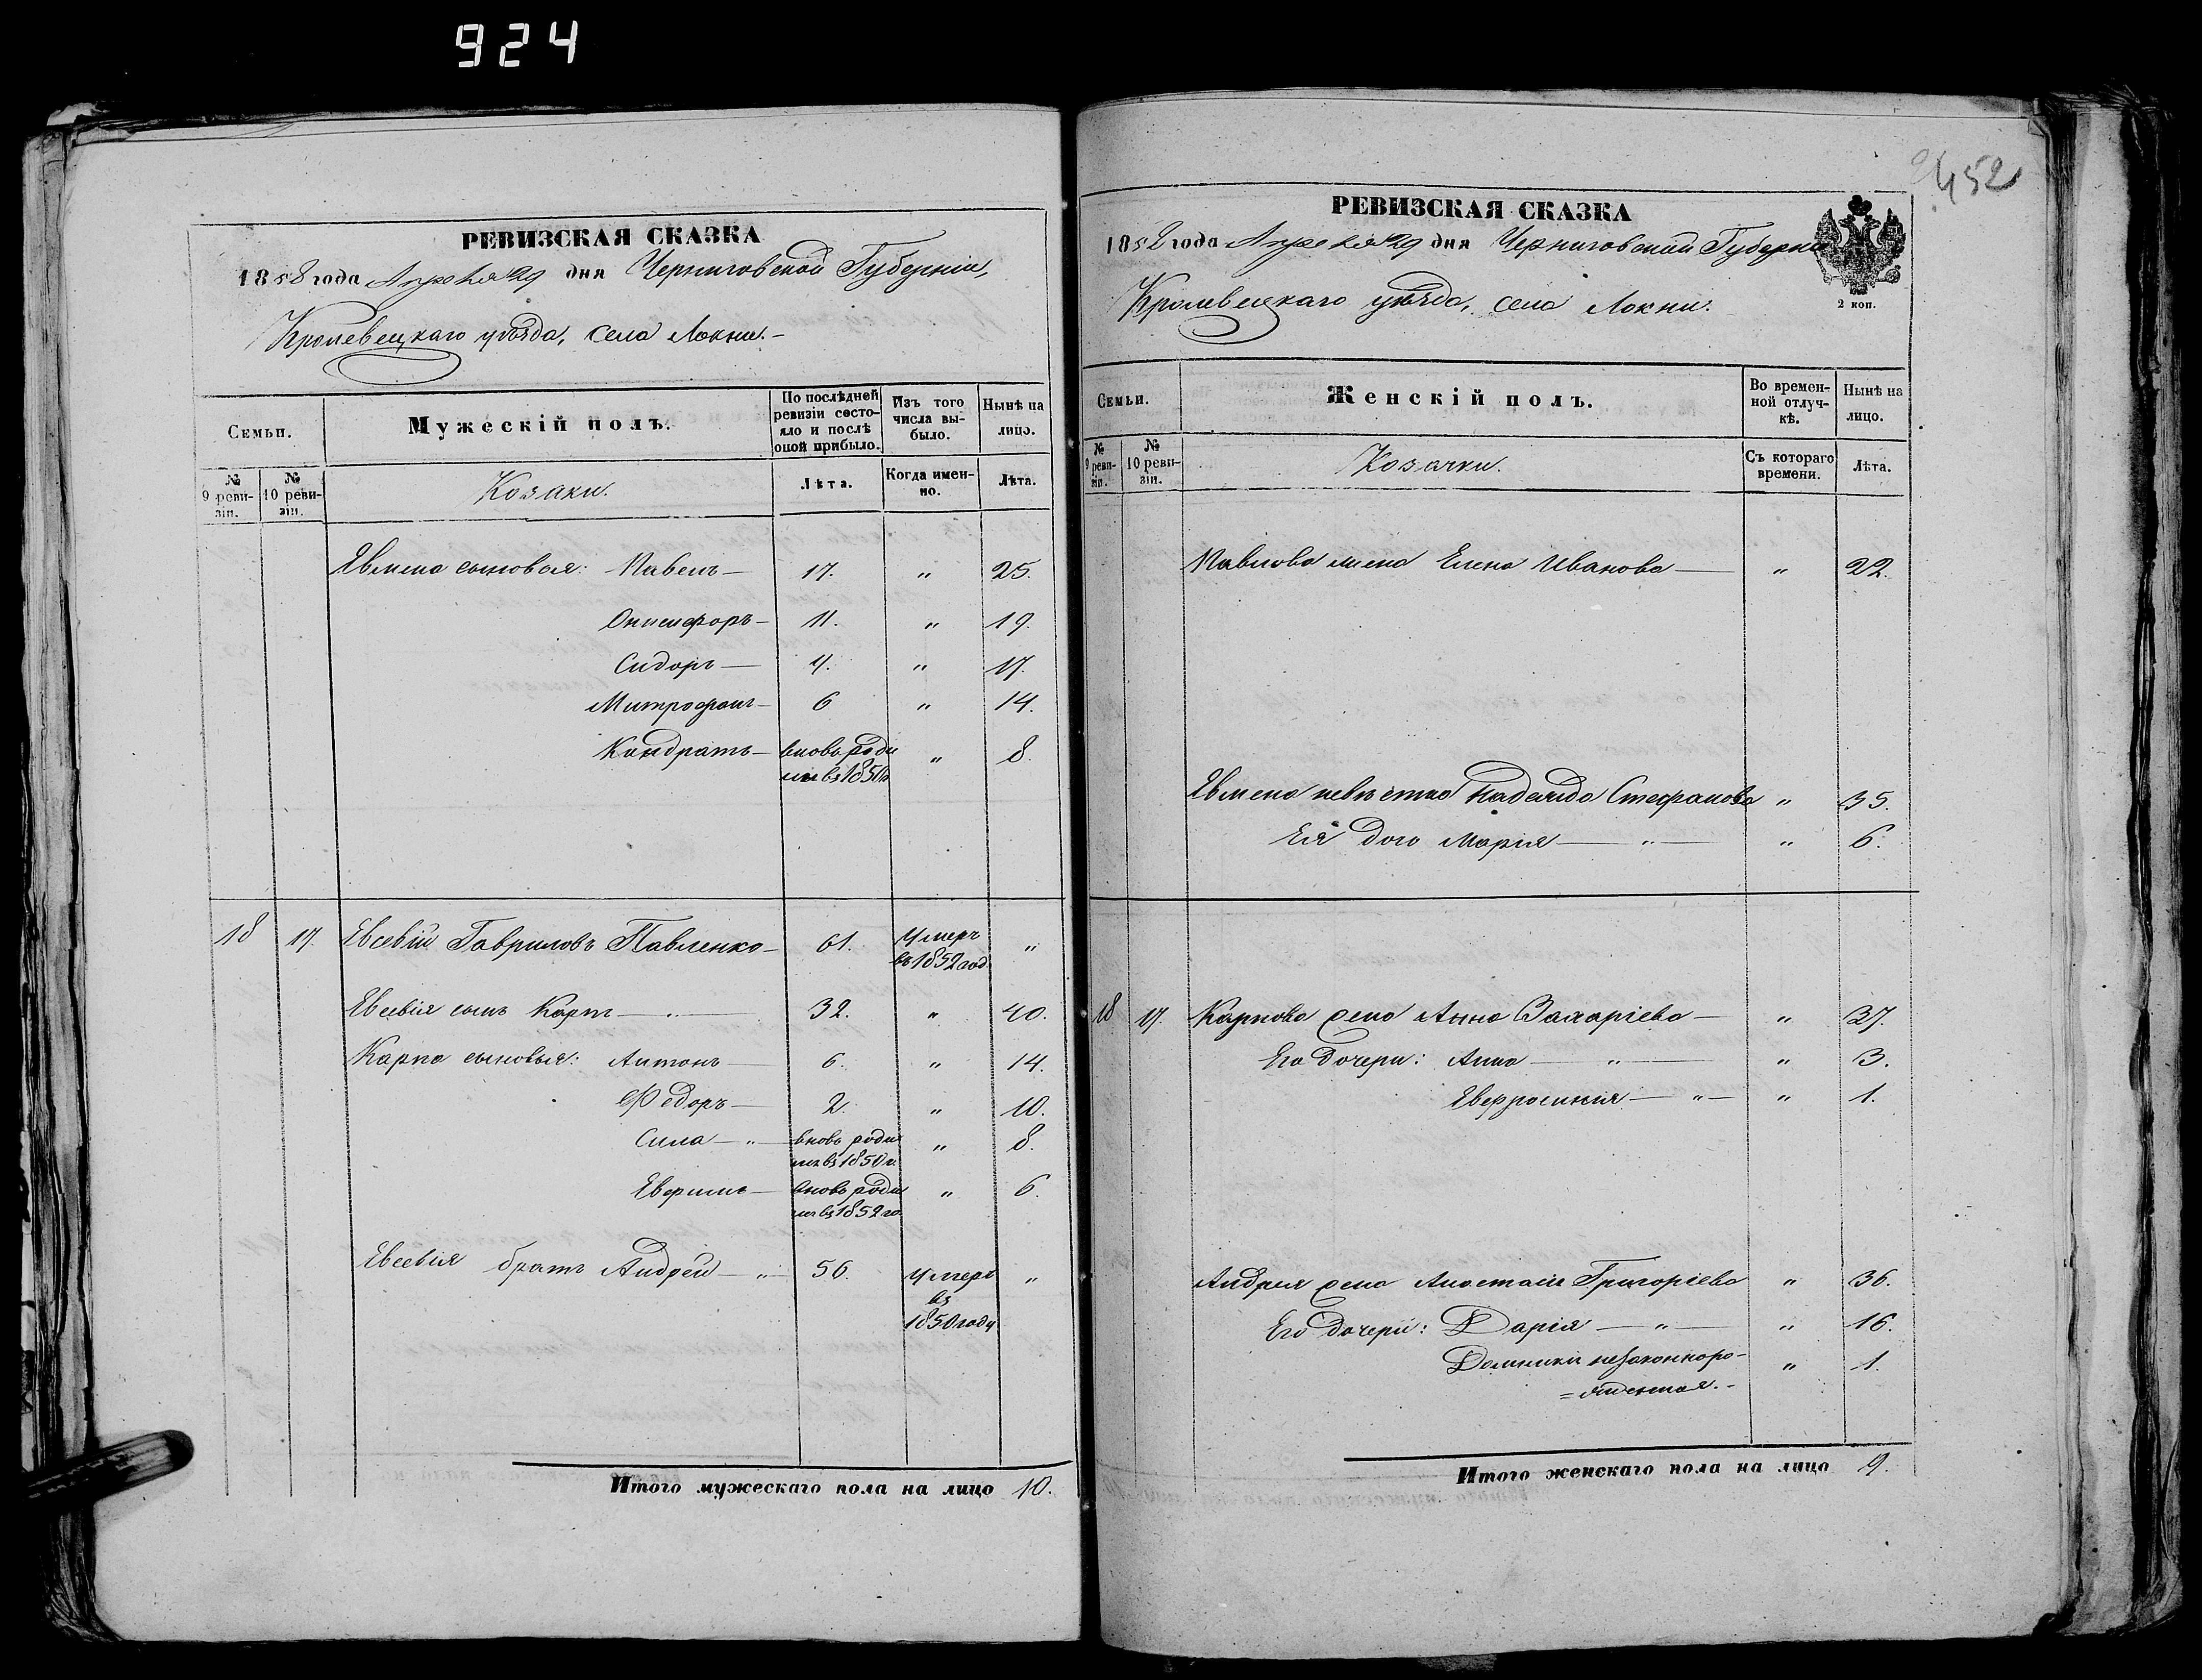 924
РЕВИЗСКАЯ СКАЗКА
1858 года Апреля 29 дня Черниговской Губернии,
Кролевецкаго уѣзда, села Локни.-
Семьи.
Мужескій полъ.
По послѣдней ревизіи состо-
яло и послѣ
оной прибыло.
Изъ того
числа вы-
было.
Нынѣ на
лицо.
№
9 реви-
зіи.
№
10 реви-
зіи.
Козаки.
Лѣта.
Когда имен-
но.
Лѣта.
Евмена сыновья: Павелъ — 17. " 25.
Онисифоръ — 11. " 19.
Сидоръ — " 17.
Митрофанъ — 6 " 14.
Кондратъ — вновь роди " 8.
лся въ 1850 г.
18 17. Евсевій Гавриловъ Павленко — 61. Умеръ "
въ 1852 год.
Евсевія сынъ Карпъ — " — 32. " 40.
Карпа сыновья: Антонъ — 6. " 14.
Федоръ — 2. " 10.
Сила — " — вновь роди " 8.
лся въ 1850 г.
Евфимъ — вновь роди " 6.
лся въ 1852 го.
Евсевія братъ Андрей — " — 56. Умеръ "
въ
1850 году
Итого мужескаго пола на лицо 10.
452
РЕВИЗСКАЯ СКАЗКА
1858 года Апреля 29 дня Черниговской Губерніи
Кролевецкаго уѣзда, села Локни.
2 коп.
Семьи.
Женскій полъ.
Во времен-
ной отлуч-
кѣ.
Нынѣ на
лицо.
№
9 реви-
зіи.
№
10 реви-
зіи.
Козачки.
Съ котораго
времени.
Лѣта.
Павлова жена Елена Иванова — " 22.
Евмена невѣстка Надежда Стефанова " 35.
Ея дочь Марія — " — " 6.
18 17. Карпова жена Анна Захаріева — " 37.
Его дочери: Анна — " — " 3.
Евфросинія — " — " 1.
Андрея жена Анастасія Григоріева " 36.
Его дочери: Дарія — " — " 16.
Домникія незаконноро- " 1.
=жденная.-
Итого женскаго пола на лицо 9.